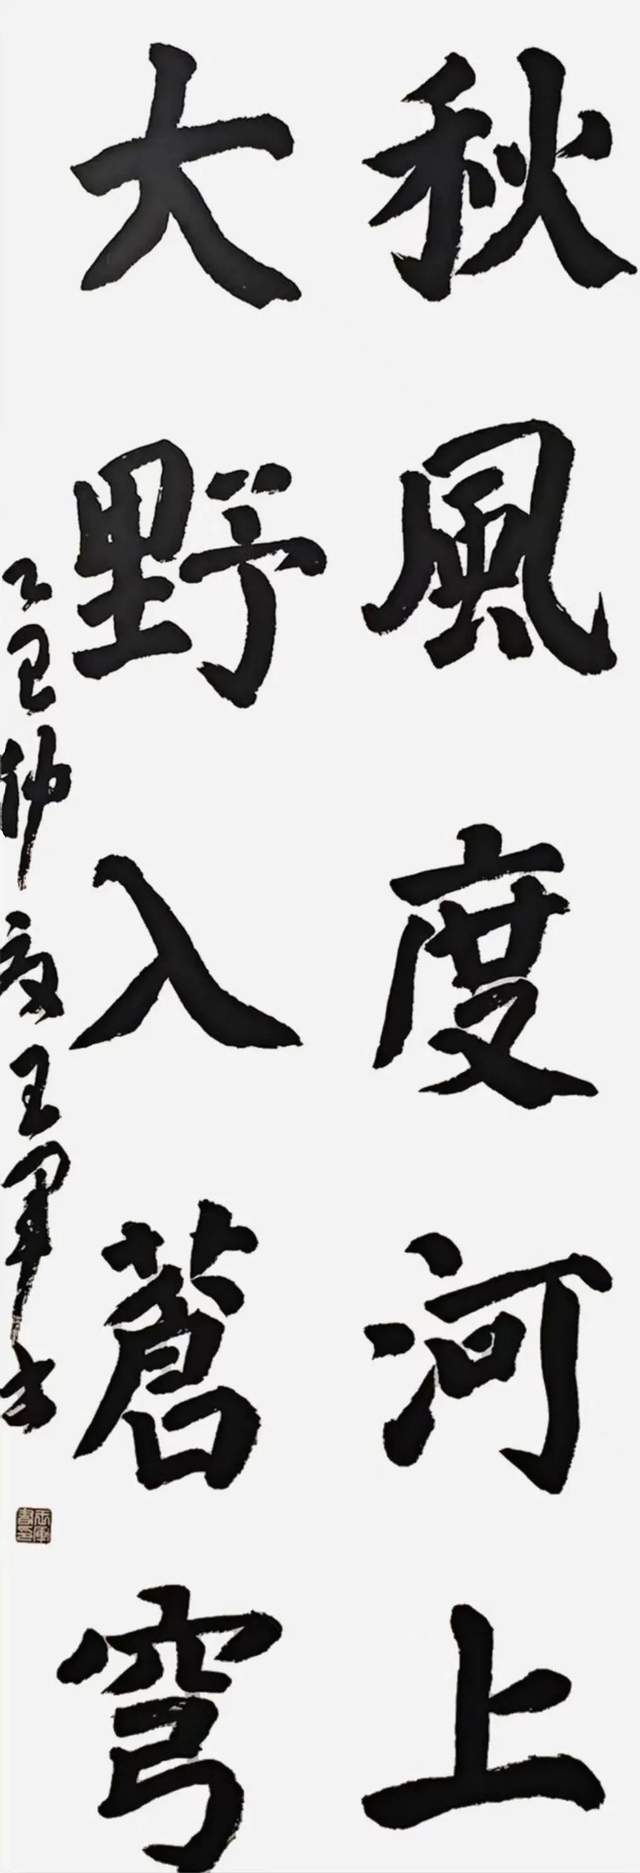 秋風度河上
大野入蒼穹
乙巳仲夏王軍書